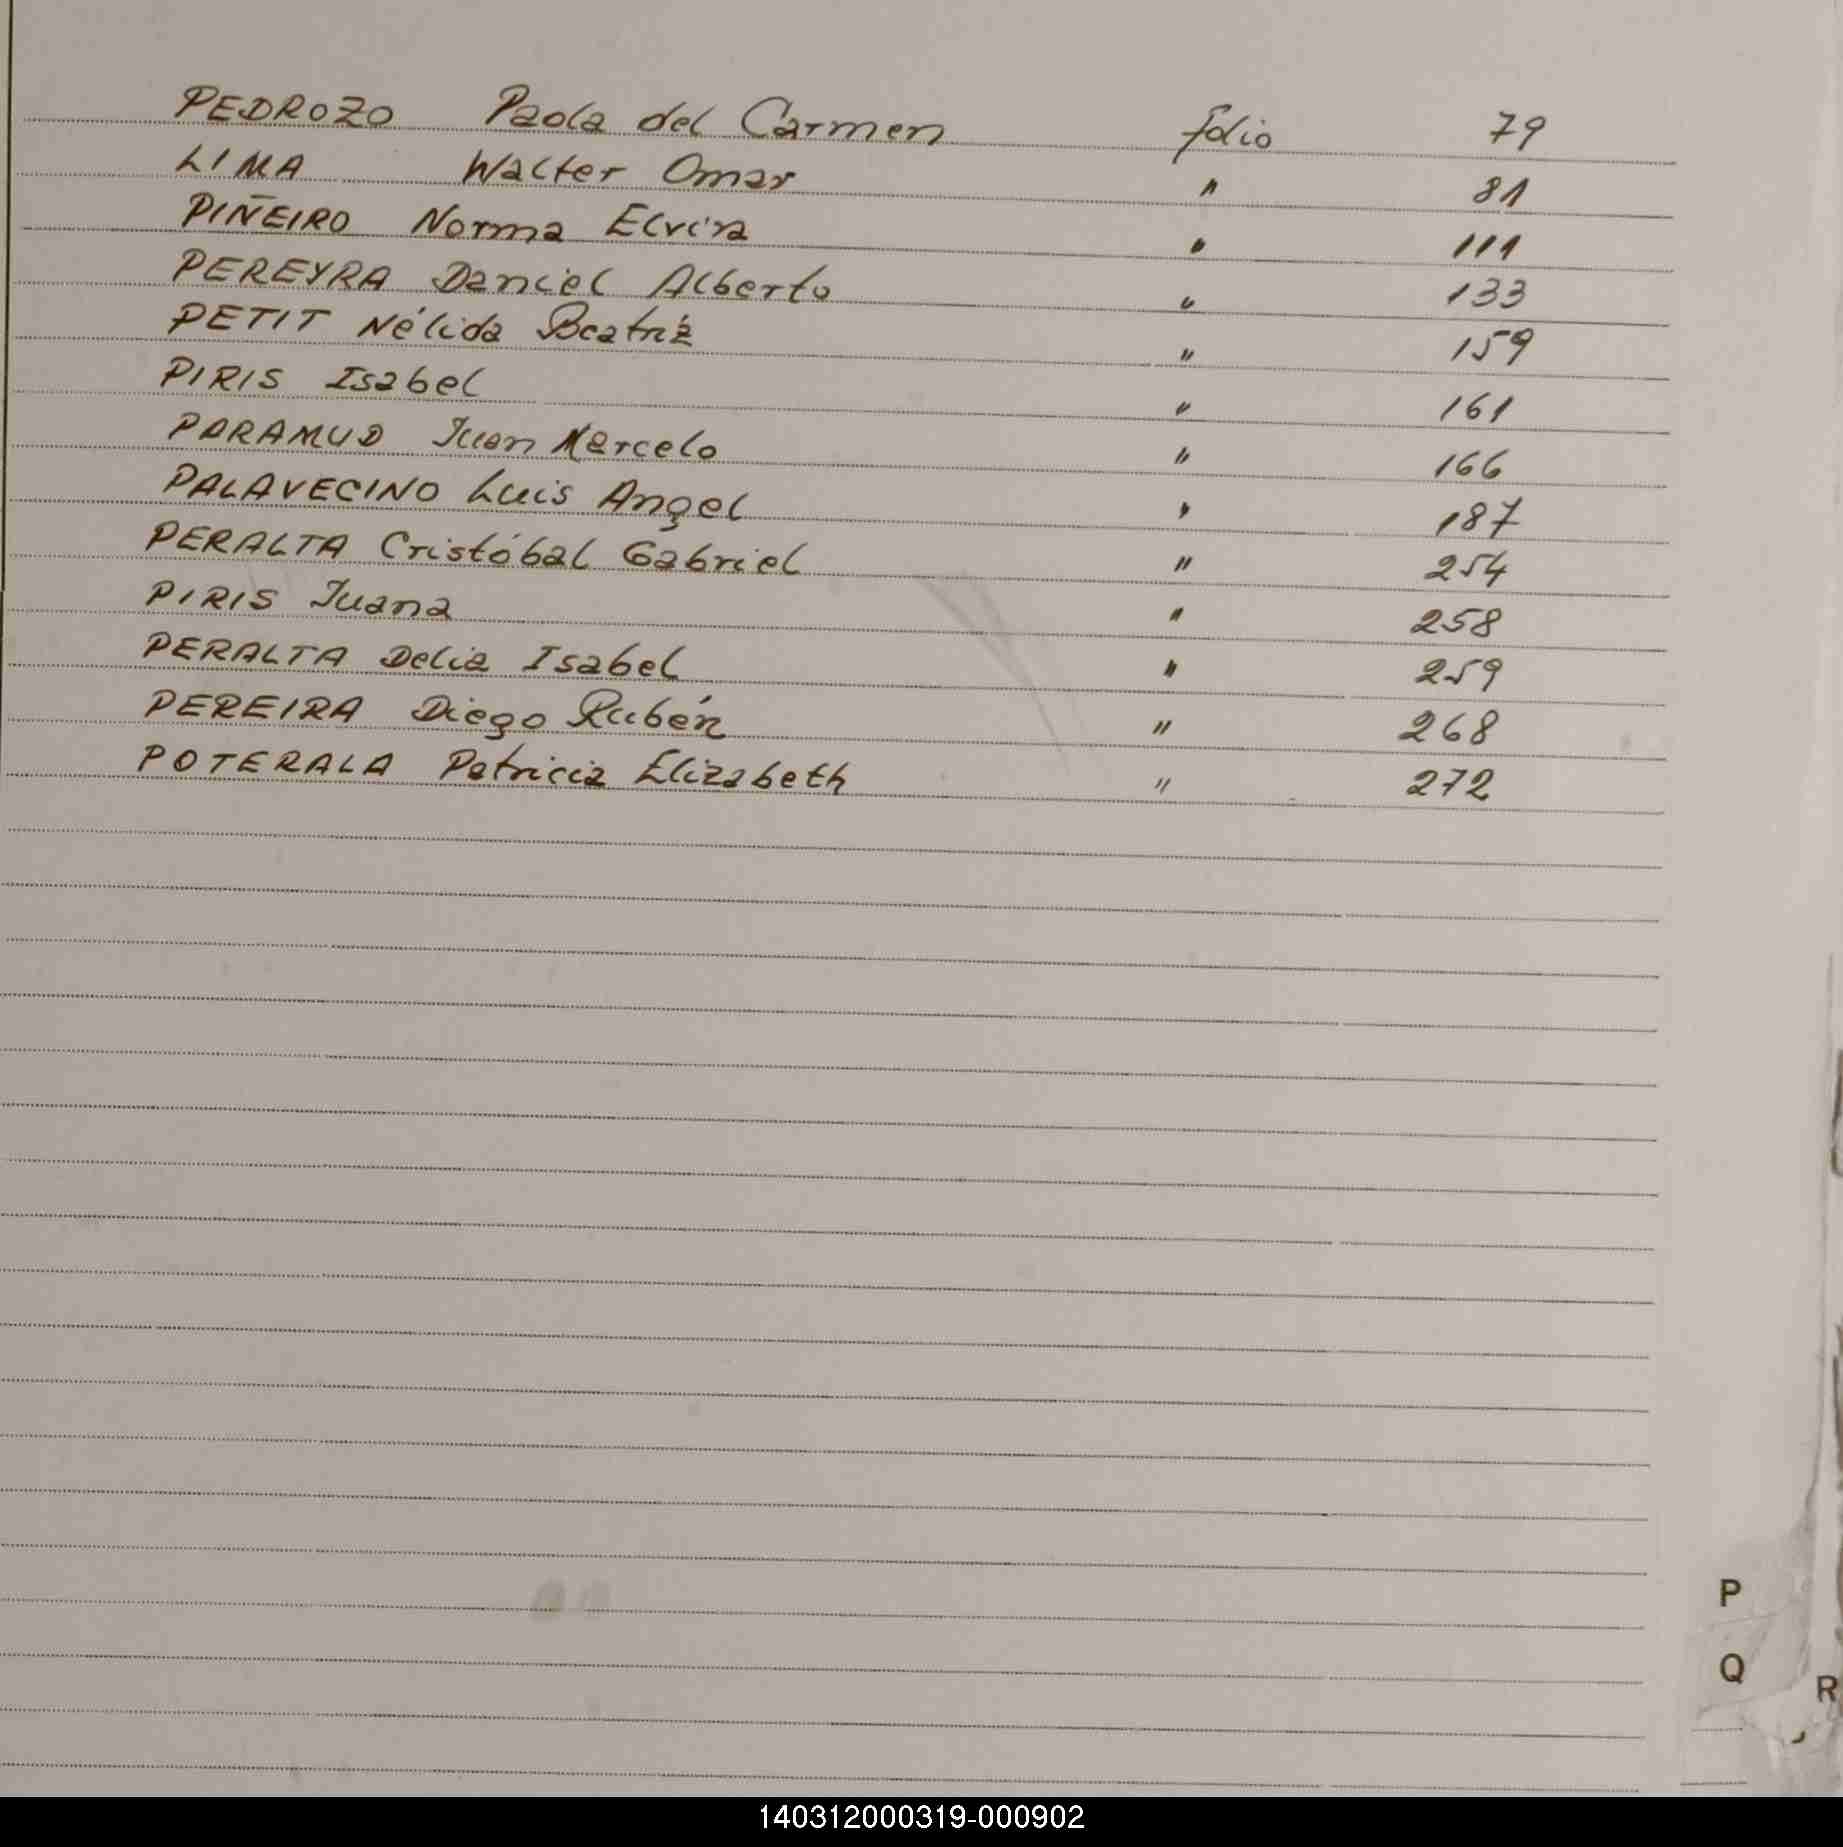 PEDROZO Paola del Carmen folio 79
LIMA Walter Omar " 81
PIÑEIRO Norma Elvira " 111
PEREYRA Daniel Alberto " 133
PETIT Nélida Beatriz " 159
PIRIS Isabel " 161
PARAMUD Juan Marcelo " 166
PALAVECINO Luis Angel " 187
PERALTA Cristóbal Gabriel " 254
PIRIS Juana " 258
PERALTA Delia Isabel " 259
PEREIRA Diego Rubén " 268
POTERALA Patricia Elizabeth " 272
P
Q
R
140312000319-000902